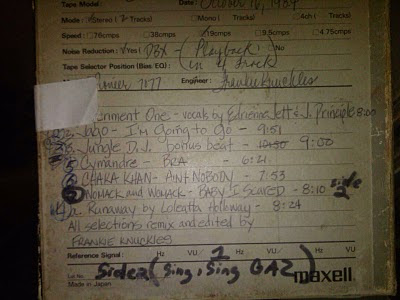 October 16, 1984
Mode: Stereo (2 Tracks) Mono ( Tracks) 4ch ( Tracks)
Speed 76cmps 38cmps 19cmps 9.5cmps 4.75cmps
Noise Reduction: Yes (DBX - (Playback) No
Tape Selector Position (Bias/EQ): (in 4 track
Pioneer 7077 Engineer: Frankie Knuckles
eriment One - vocals by Edriena Jett & J. Principle 8:00
Jago - I'm Going to Go - 9:51
Jungle D.J. bonus beat - 10:30 9:00
Cymandre - BRA - 6:21
CHAKA KHAN - AIN'T NOBODY - 7:53
WOMACK and WOMACK - BABY I SCARED - 8:10 side 2
a. Runaway by Loleatta Holloway - 8:24
All selections remix and edited by
FRANKIE KNUCKLES
Reference Signal: Hz VU 1 Hz VU Hz VU
Lot No. Side 2 (Sing, Sing GAZ) maxell
Made in Japan